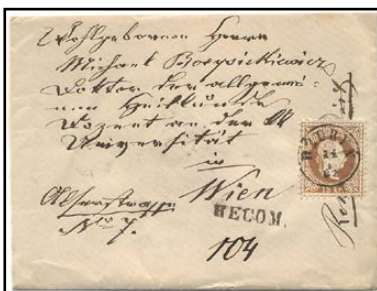 Wohlgeboren Herrn
Michael
Doktor der allgemei-
nen Heilkunde
Dozent an der
Universität
in
Wien
Alserstrasse
No 7.
RECOM.
104